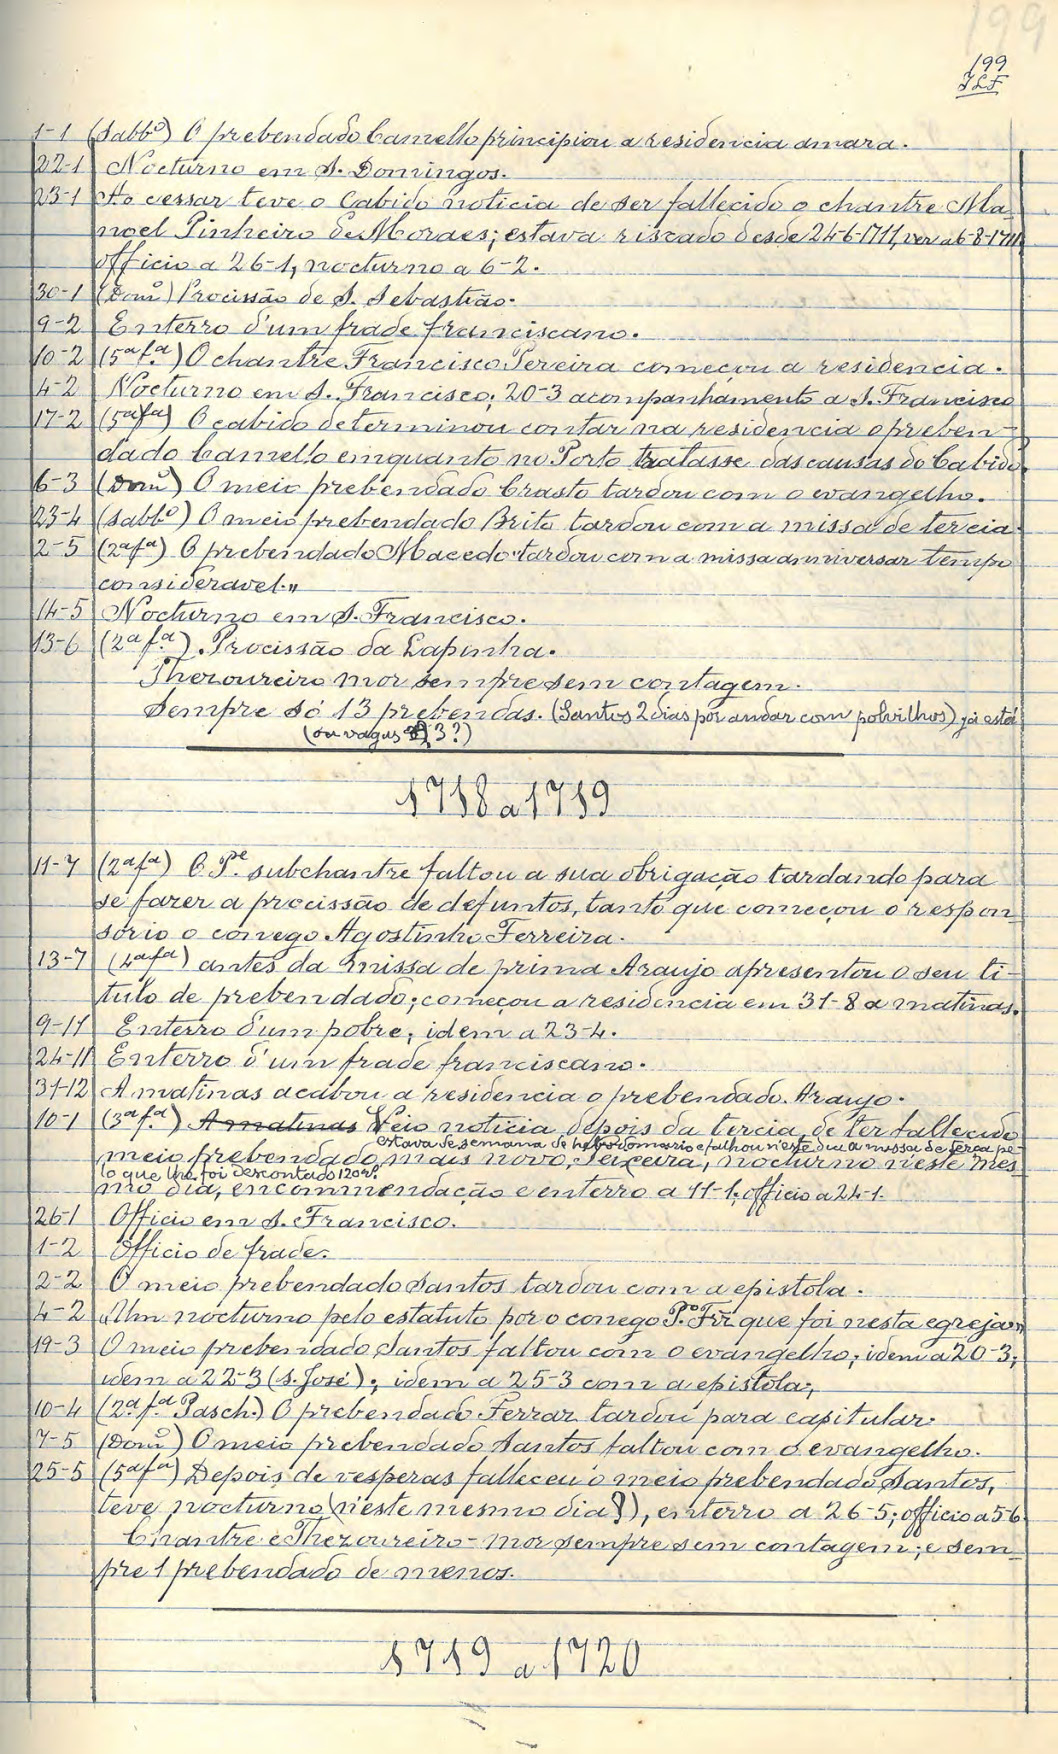 199
199
JLF
1-1 (Sabbº) O prebendado Camello principiou a residencia amara.
22-1 Nocturno em S. Domingos.
23-1 Ao cessar teve o Cabido noticia de ser fallecido o chantre Ma-
noel Pinheiro de Moraes; estava riscado desde 24-6-1711, ver a 6-8-1711
officio a 26-1, nocturno a 6-2.
30-1 (Domº) Procissão de S. Sebastião.
9-2 Enterro d'um frade franciscano.
10-2 (5ª f.ª) O chantre Francisco Pereira começou a residencia.
4-2 Nocturno em S. Francisco; 20-3 acompanhamento a S. Francisco
17-2 (5ª fª) O cabido determinou contar na residencia o preben-
dado Camello emquanto no Porto tratasse das causas do Cabido.
6-3 (Domº) O meio prebendado Crasto tardou com o evangelho.
23-4 (Sabbº) O meio prebendado Brito tardou com a missa de tercia.
2-5 (2ª fª) O prebendado Macedo "tardou com a missa anniversar tempo
consideravel."
14-5 Nocturno em S. Francisco.
13-6 (2ª f.ª). Procissão da Lapinha.
Thezoureiro mor sempre sem contagem.
Sempre só 13 prebendas. (Santos 2 dias por andar com polvilhos) já está
(ou vagas 3?)
1718 a 1719
11-7 (2ª fª) O Pe. subchantre faltou a sua obrigação tardando para
se fazer a procissão de defuntos, tanto que começou o respon-
sorio o conego Agostinho Ferreira.
13-7 (4ª fª) antes da missa de prima Araujo apresentou o seu ti-
tulo de prebendado; começou a residencia em 31-8 a matinas.
9-11 Enterro d'um pobre; idem a 23-4.
24-11 Enterro d'um frade franciscano.
31-12 A matinas acabou a residencia o prebendado Araujo.
10-1 (3ª f.ª) A matinas Veio noticia depois da tercia de ter fallecido
estava de semana de hebdomario e falhou n'este dia a missa de terça pe-
meio prebendado mais novo, Teixeira; nocturno n'este mes-
lo que lhe foi descontado 120 rs.
mo dia, encommendação e enterro a 11-1; officio a 24-1.
26-1 Officio em S. Francisco.
1-2 Officio de frade.
2-2 O meio prebendado Santos tardou com a epistola.
4-2 "Um nocturno pelo estatuto por o conego P.º Frz que foi nesta egreja"
19-3 O meio prebendado Santos faltou com o evangelho; idem a 20-3;
idem a 22-3 (S. José); idem a 25-3 com a epistola;
10-4 (2ª f.ª Pasch.) O prebendado Ferraz tardou para capitular.
7-5 (Domº) O meio prebendado Santos faltou com o evangelho.
25-5 (5ª fª) Depois de vesperas falleceu o meio prebendado Santos,
teve nocturno (n'este mesmo dia?), enterro a 26-5; officio a 5-6
Chantre e Thezoureiro-mor sempre sem contagem; e sem-
pre 1 prebendado de menos.
1719 a 1720